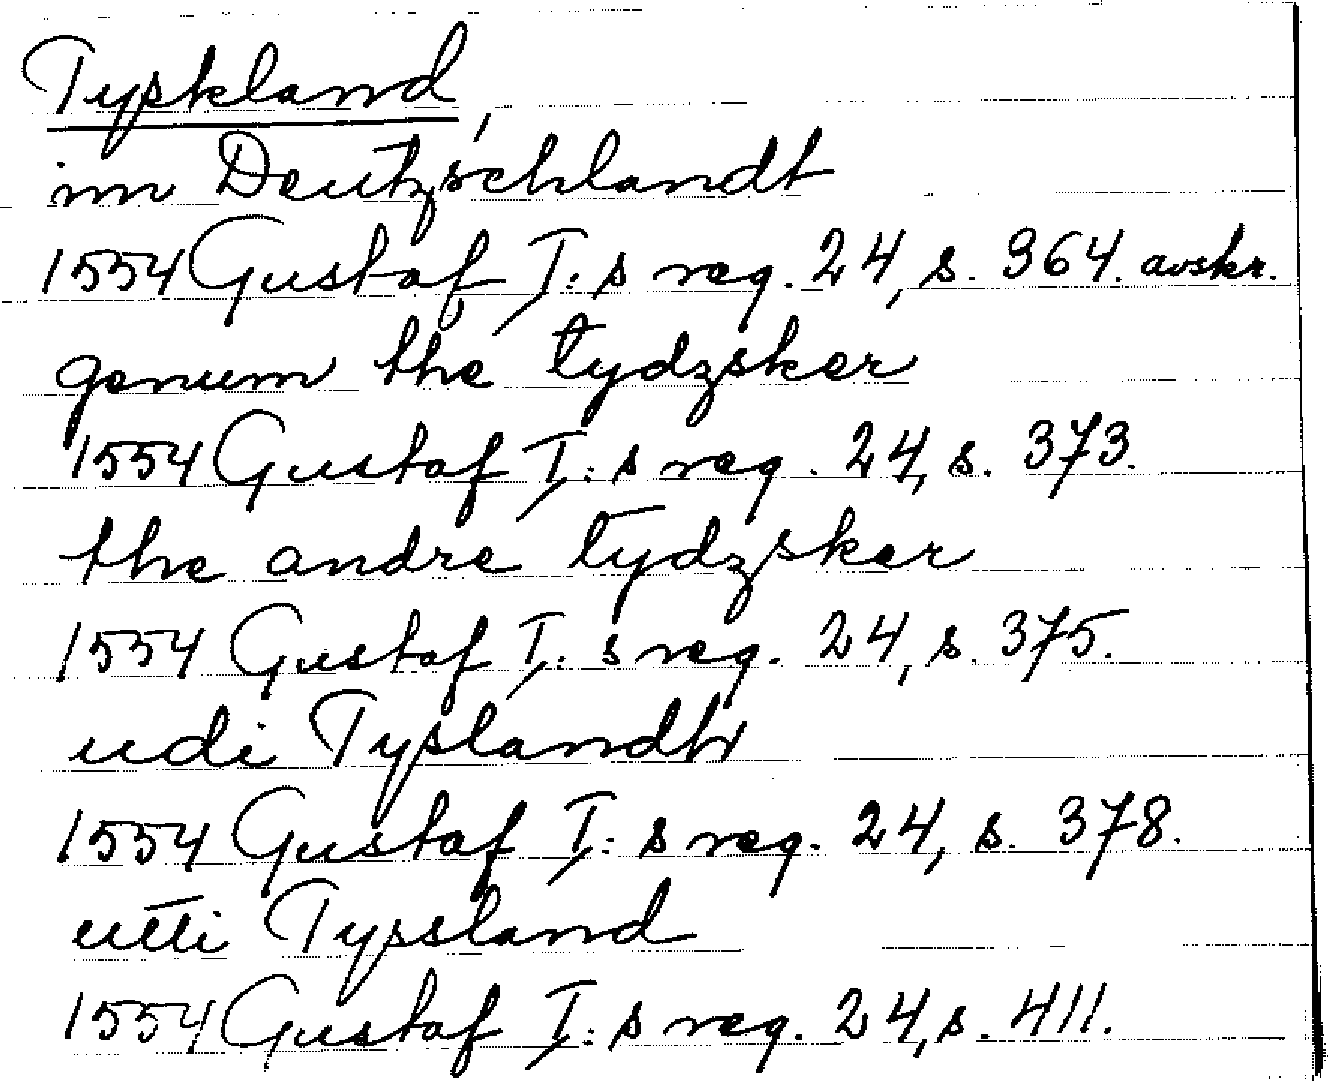 Tyskland,
im Deutzschlandt
1554 Gustaf I: s reg. 24, s. 364. avskr.
genum the tydzsker
1554 Gustaf I: s reg. 24, s. 373.
the andre tydzsker
1554 Gustaf I: s reg. 24, s. 375.
udi Tyslandh
1554 Gustaf I: s reg. 24, s. 378.
utti Tyssland
1554 Gustaf I: s reg. 24, s. 411.